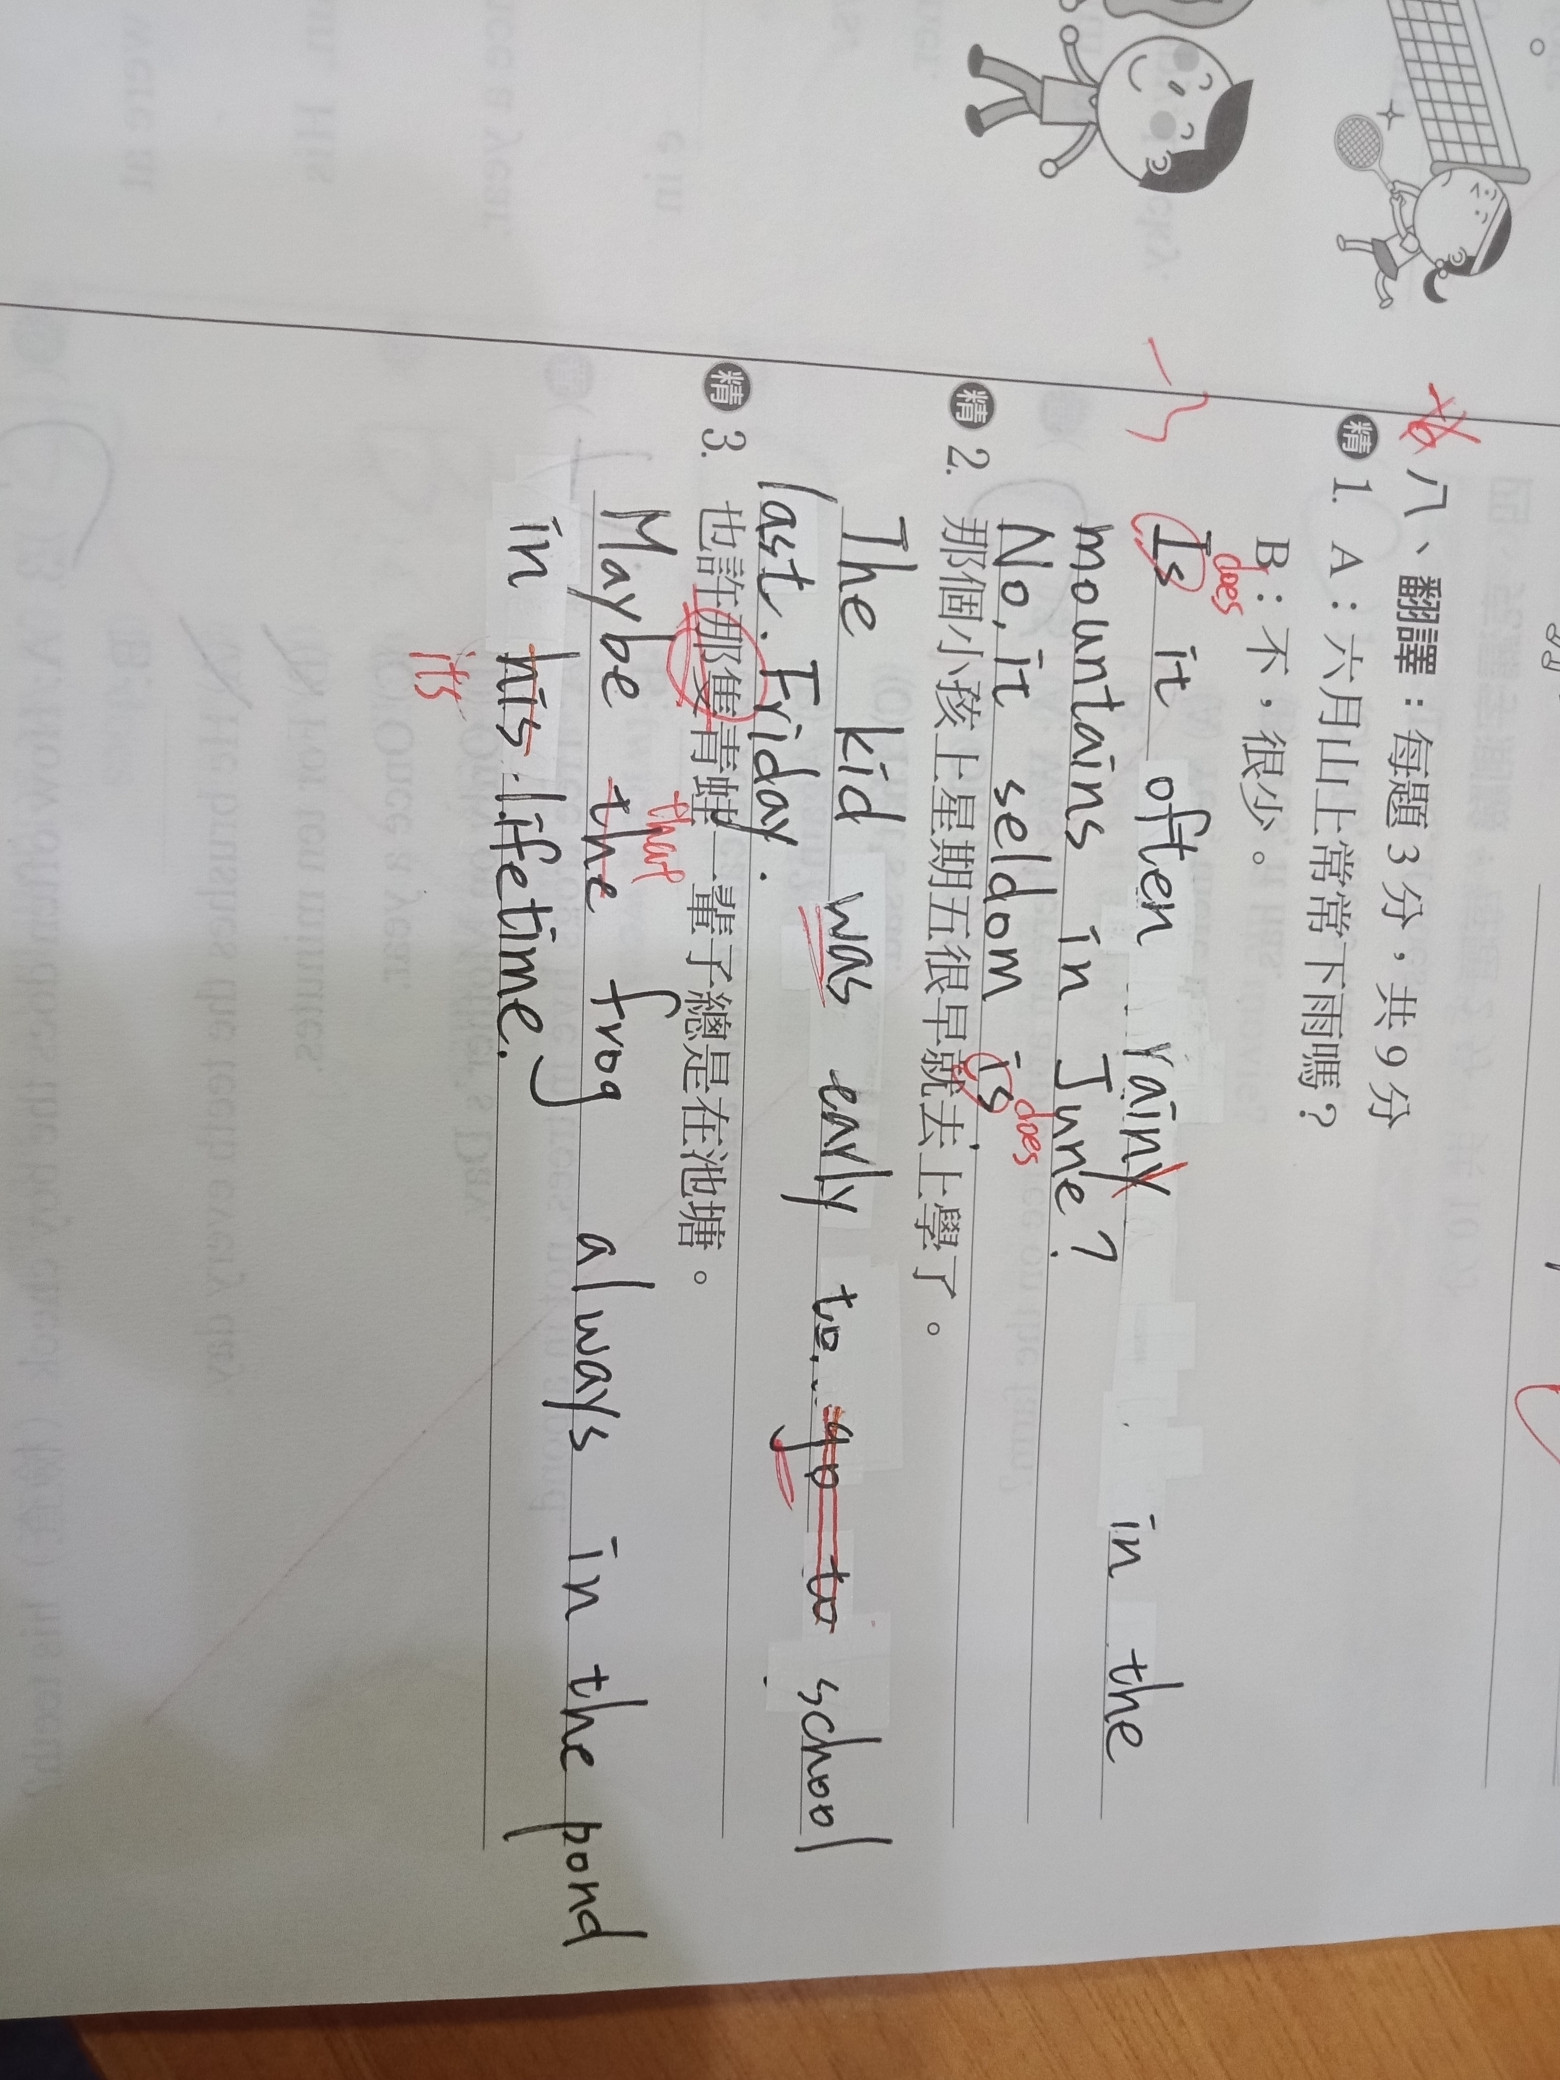 八、翻譯：每題3分，共9分
精 1. A：六月山上常常下雨嗎？
B：不，很少。
does
Is it often rainy in the
mountains in June?
does
No, it seldom is.
精 2. 那個小孩上星期五很早就去上學了。
The kid was early to go to school
last Friday.
精 3. 也許那隻青蛙一輩子總是在池塘。
that
Maybe the frog always in the pond
in his lifetime.
its